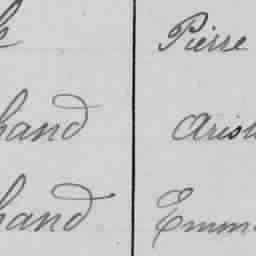 Pierre
hand Arist
hand Emma